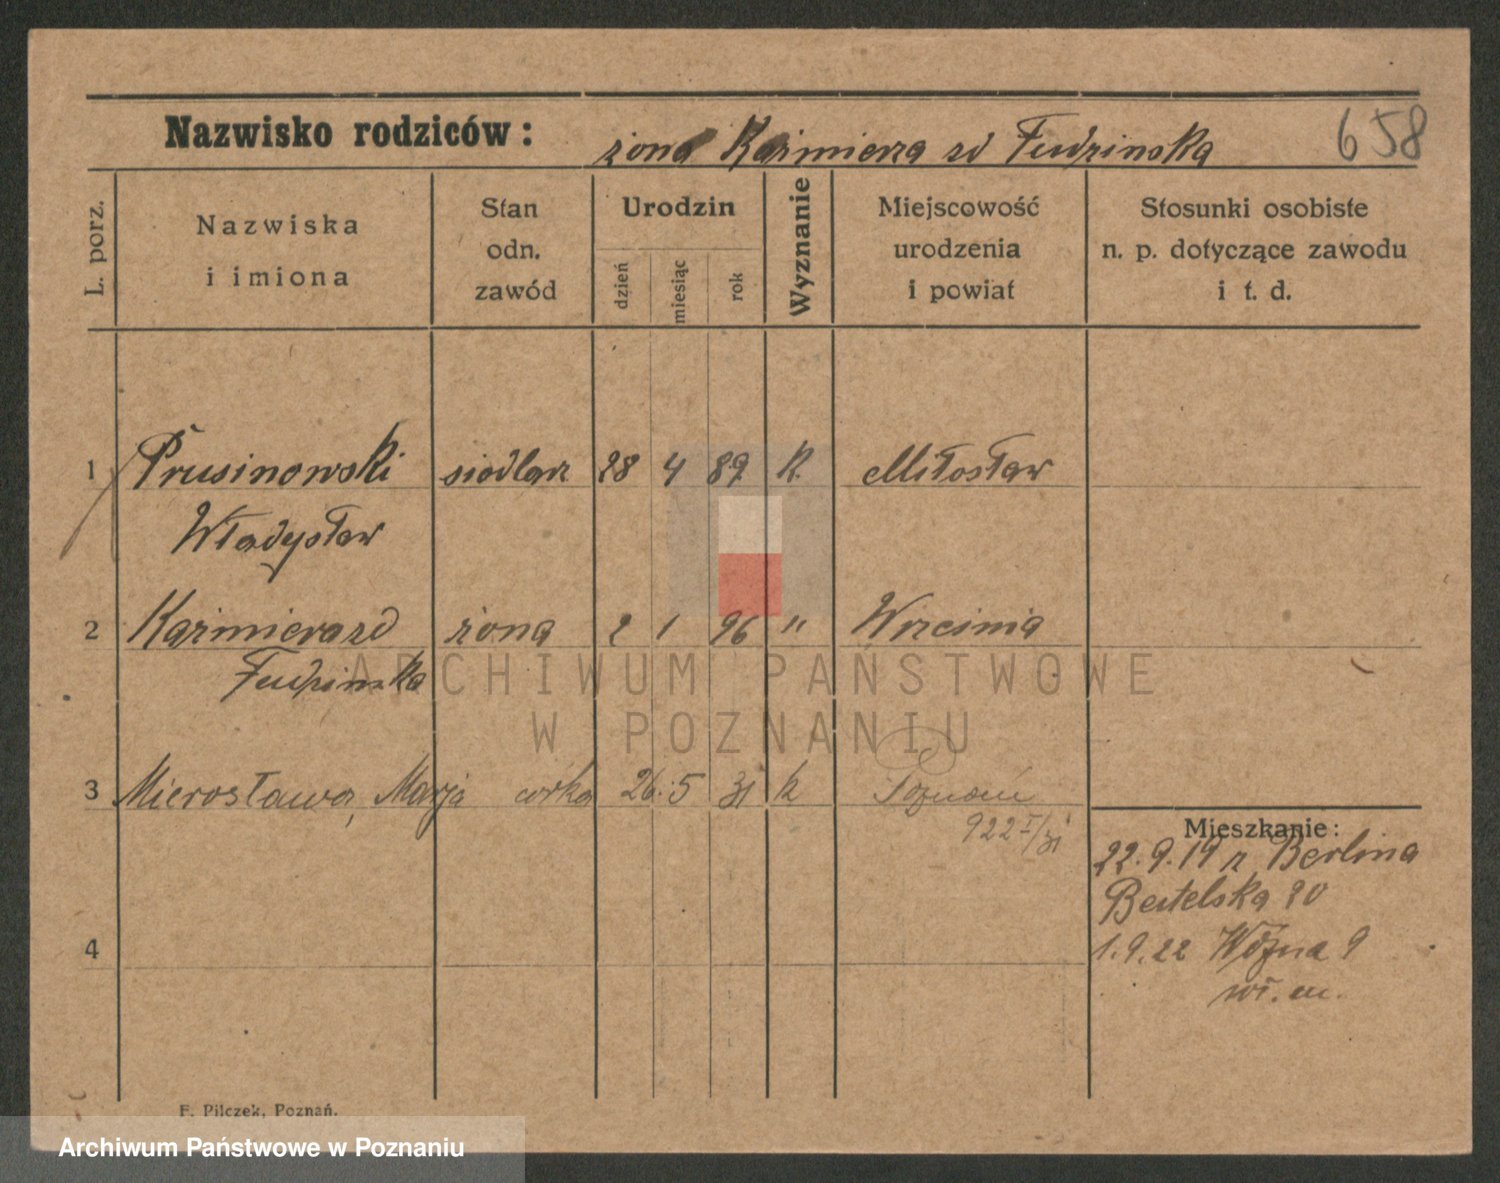 Nazwisko rodziców: żona Kazimiera zd Fudzinska 658
L. porz.
Nazwiska i imiona
Stan odn. zawód
Urodzin
dzień
miesiąc
rok
Wyznanie
Miejscowość urodzenia i powiat
Stosunki osobiste n. p. dotyczące zawodu i t. d.
1 Prusinowski siodlarz 28 4 89 K. Miłosław
Władysław
2 Kazimiera zd żona 2 1 96 " Września
Fudzinska
ARCHIWUM PAŃSTWOWE
W POZNANIU
3 Mierosława, Marja córka 26.5 31 k Poznań
922 I/31
Mieszkanie:
22.9.19 z Berlina
20
4 1.9.22 Woźna 9
wł. m.
F. Pilczek, Poznań.
Archiwum Państwowe w Poznaniu